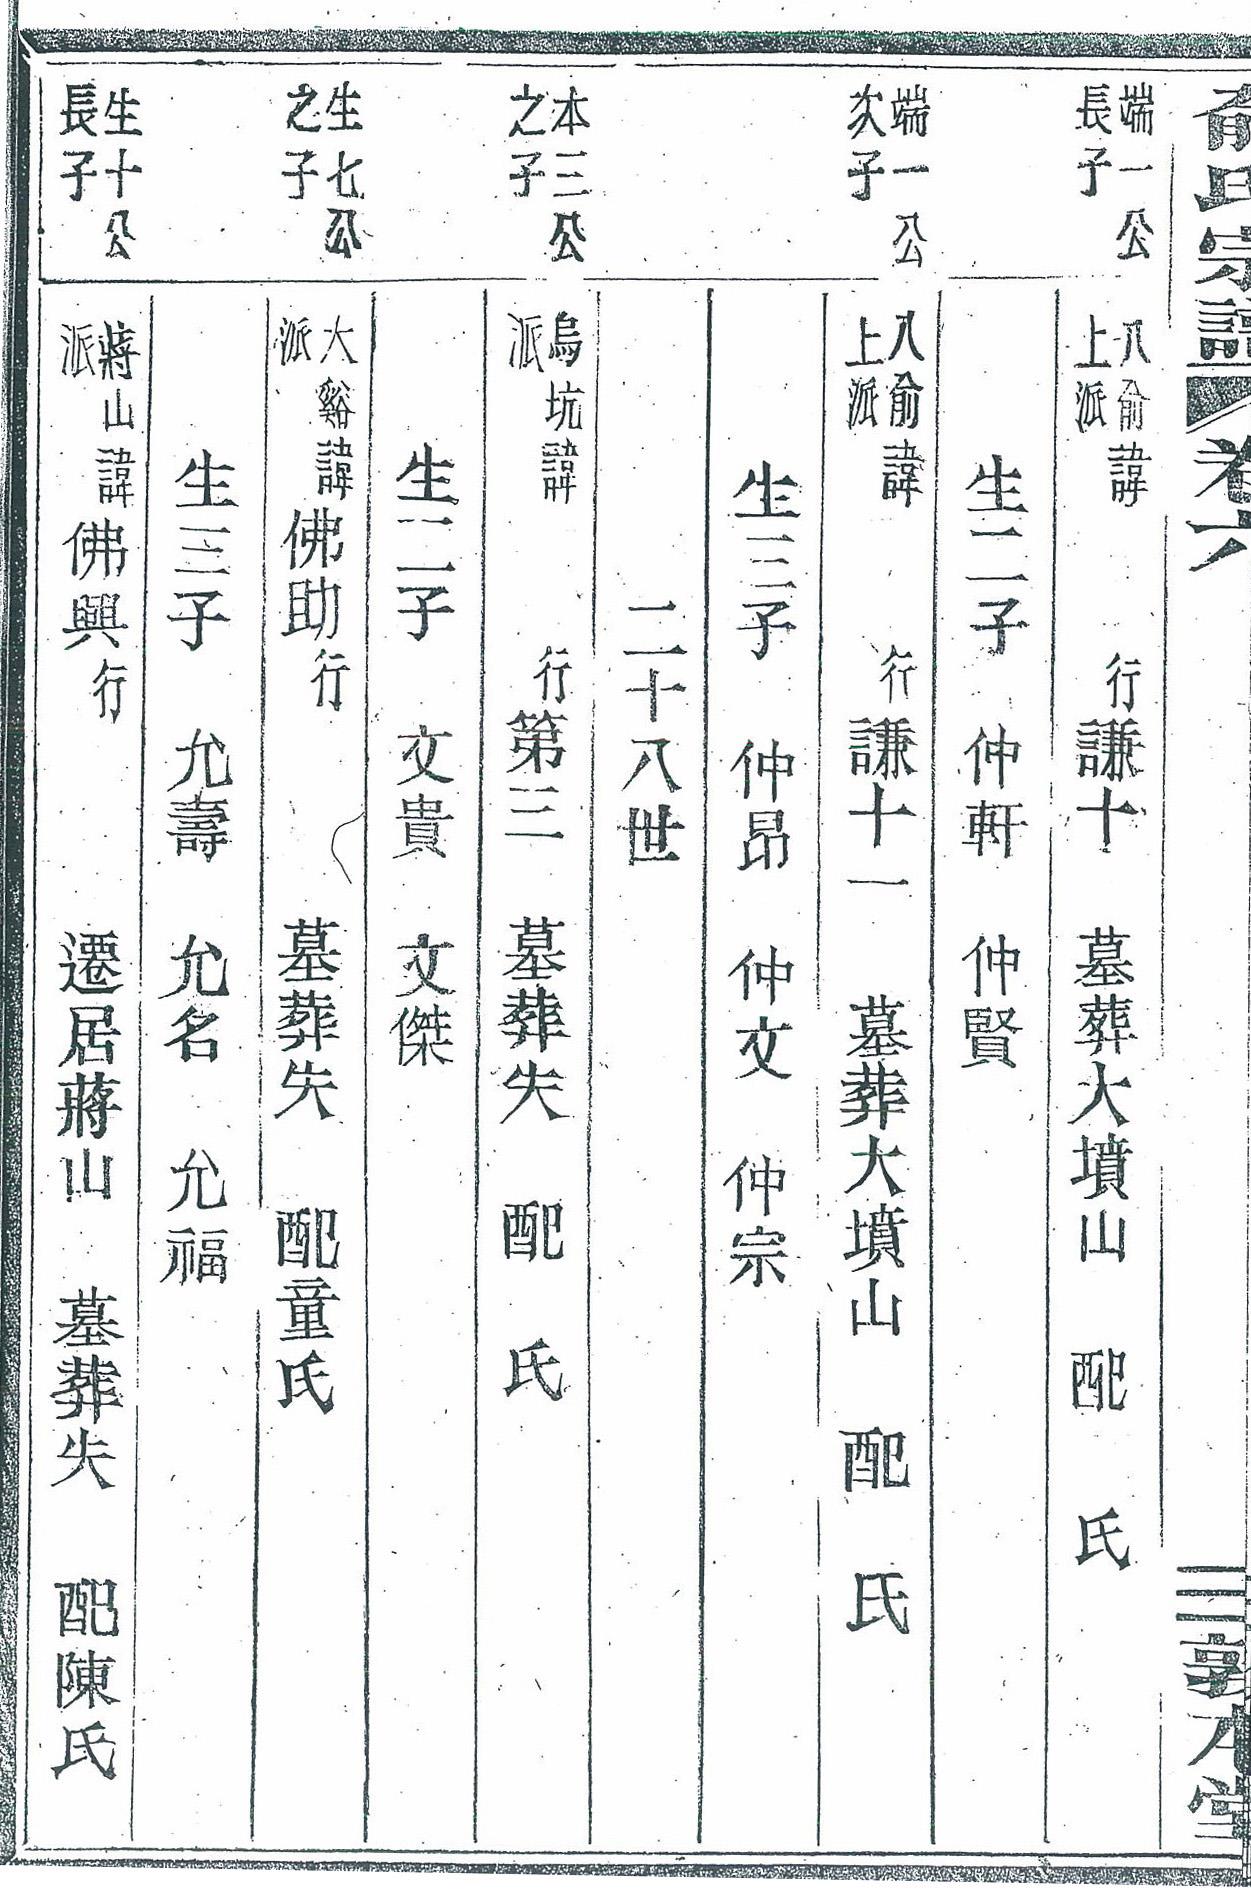 俞氏宗譜 卷六 三 敦本堂
端一公
長子
八俞諱 行謙十 墓葬大墳山 配 氏
上派
生二子 仲軒 仲賢
端一公
次子
八俞諱 行謙十一 墓葬大墳山 配 氏
上派
生三子 仲昂 仲文 仲宗
二十八世
本三公
之子
烏坑諱 行第三 墓葬失 配 氏
派
生二子 文貴 文傑
生七公
之子
大谿諱佛助行 墓葬失 配童氏
派
生三子 允壽 允名 允福
生十公
長子
蔣山諱佛興行 遷居蔣山 墓葬失 配陳氏
派